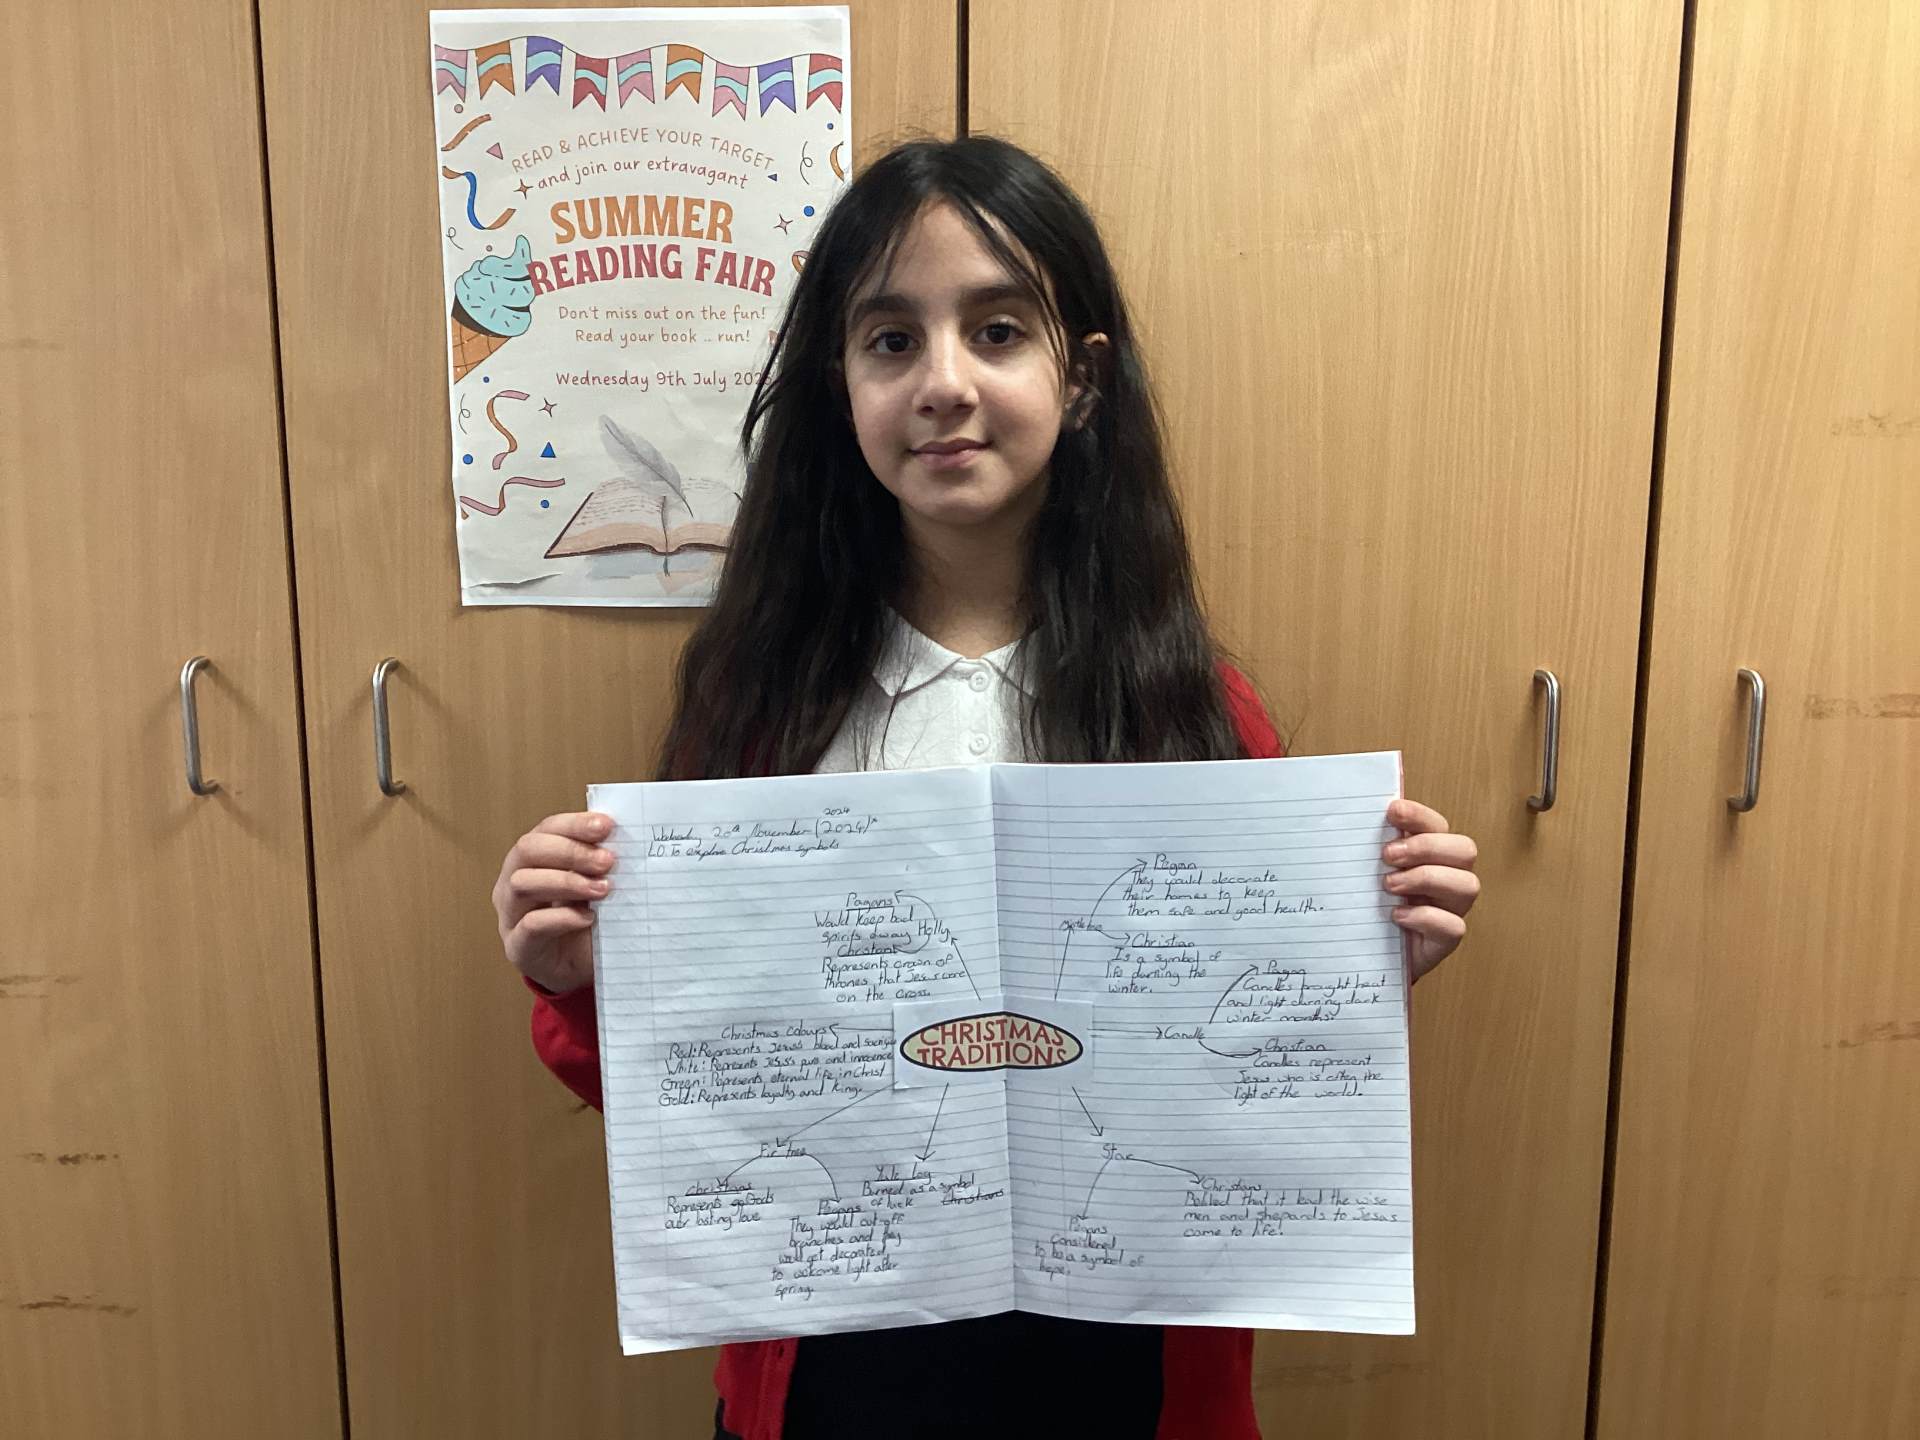 READ & ACHIEVE YOUR TARGET
and join our extravagant
SUMMER
READING FAIR
Don't miss out on the fun!
Read your book .. run!
Wednesday 9th July 2025
2024
Wednesday 20th November (2024)*
LO To explore Christmas symbols
Pagans
Would keep bad
spirits away
Holly
Christans
Represents crown of
thrones that Jesus wore
on the cross.
Christmas Colours
Red: Represents Jesus's blood and sacrifice
White: Represents Jesus's pure and innocence
Green: Represents eternal life in Christ
Gold: Represents loyalty and king.
CHRISTMAS
TRADITIONS
Fir tree
Christians
Represents Gods
over lasting love
Pagans
They would cut off
branches and they
would get decorated
to welcome light after
Spring.
Yule Log
Burned as a symbol
of luck
Christians
Mistletoe
Pagan
They would decorate
their homes to keep
them safe and good health.
Christian
Is a symbol of
life durning the
winter.
Candle
Pagan
Candles brought heat
and light durning dark
winter months.
Christian
Candles represent
Jesus who is often the
light of the world.
Star
Pagans
Considered
to be a symbol of
hope.
Christians
Belived that it lead the wise
men and shepards to Jesus
came to life.